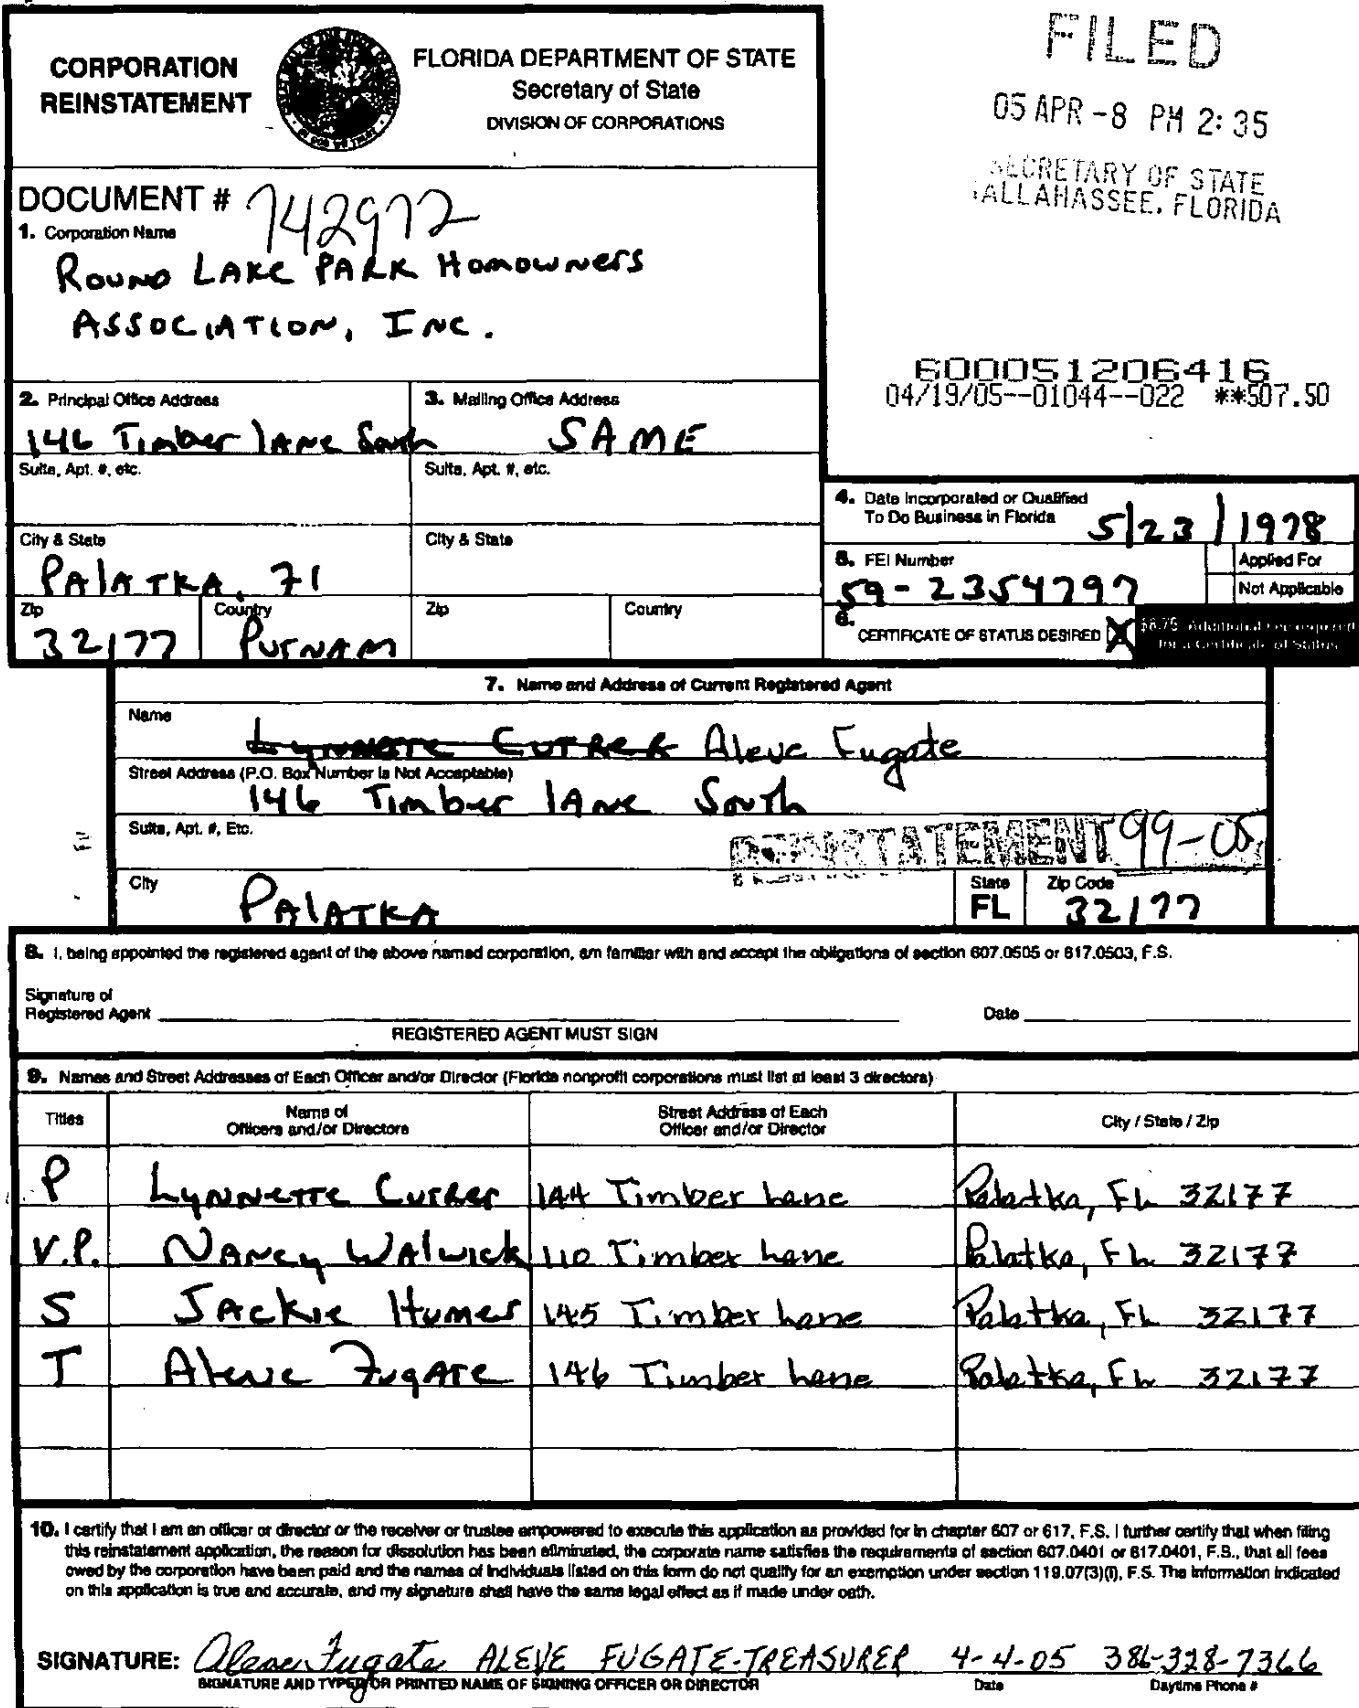 CORPORATION
REINSTATEMENT
FLORIDA DEPARTMENT OF STATE
Secretary of State
DIVISION OF CORPORATIONS
FILED
05 APR -8 PM 2:35
SECRETARY OF STATE
TALLAHASSEE, FLORIDA
DOCUMENT # 742972
1. Corporation Name
ROUND LAKE PARK HOMOWNERS
ASSOCIATION, INC.
600051206416
04/19/05--01044--022 **507.50
2. Principal Office Address
3. Mailing Office Address
146 Timber lane South
SAME
Suite, Apt. #, etc.
Suite, Apt. #, etc.
4. Date Incorporated or Qualified
To Do Business in Florida
5/23/1978
City & State
City & State
PAlATKA, Fl
5. FEI Number
59-2354797
Applied For
Not Applicable
Zip
Country
Zip
Country
32177
PUTNAM
6.
CERTIFICATE OF STATUS DESIRED X
$8.75 Additional Fee required
for a Certificate of Status
7. Name and Address of Current Registered Agent
Name
Lynnette Currer Aleve Fugate
Street Address (P.O. Box Number is Not Acceptable)
146 Timber lane South
Suite, Apt. #, Etc.
99-05
City
PAlATKA
State
FL
Zip Code
32177
8. I, being appointed the registered agent of the above named corporation, am familiar with and accept the obligations of section 607.0505 or 617.0503, F.S.
Signature of
Registered Agent
Date
REGISTERED AGENT MUST SIGN
9. Names and Street Addresses of Each Officer and/or Director (Florida nonprofit corporations must list at least 3 directors)
Titles
Name of
Officers and/or Directors
Street Address of Each
Officer and/or Director
City / State / Zip
P Lynnette Currer 144 Timber Lane Palatka, FL 32177
V.P. Nancy Walwick 110 Timber Lane Palatka, FL 32177
S Jackie Humes 145 Timber Lane Palatka, FL 32177
T Aleve Fugate 146 Timber Lane Palatka, FL 32177
10. I certify that I am an officer or director or the receiver or trustee empowered to execute this application as provided for in chapter 607 or 617, F.S. I further certify that when filing
this reinstatement application, the reason for dissolution has been eliminated, the corporate name satisfies the requirements of section 607.0401 or 617.0401, F.S., that all fees
owed by the corporation have been paid and the names of individuals listed on this form do not qualify for an exemption under section 119.07(3)(i), F.S. The information indicated
on this application is true and accurate, and my signature shall have the same legal effect as if made under oath.
SIGNATURE: Aleve Fugate ALEVE FUGATE-TREASURER 4-4-05 386-328-7366
SIGNATURE AND TYPED OR PRINTED NAME OF SIGNING OFFICER OR DIRECTOR
Date
Daytime Phone #